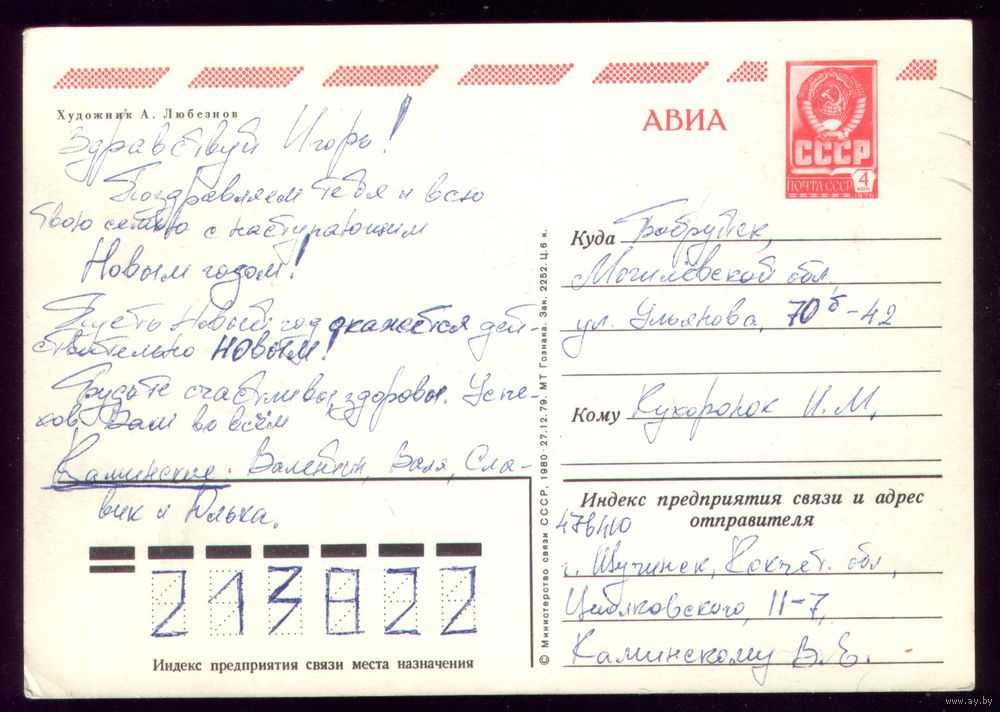 Художник А. Любезнов
Здравствуй Игорь!
Поздравляем тебя и всю
твою семью с наступающим
Новым годом!
Пусть Новый год окажется дей-
ствительно новым!
Будьте счастливы, здоровы. Успе-
хов Вам во всём
Каминские: Валентин, Валя, Сла-
вик и Юлька.
213822
Индекс предприятия связи места назначения
© Министерство связи СССР, 1980· 27.12.79. МТ Гознака. Зак. 2252. Ц.6 к.
АВИА
СССР
ПОЧТА СССР 4 коп
1976
Куда Бобруйск,
Могилёвской обл,
ул. Ульянова, 70б-42
Кому Кухоронок И.М,
Индекс предприятия связи и адрес
отправителя
476410
г. Щучинск, Кокчет. обл,
Циолковского, 11-7,
Каминскому В.Е.
www.ay.by